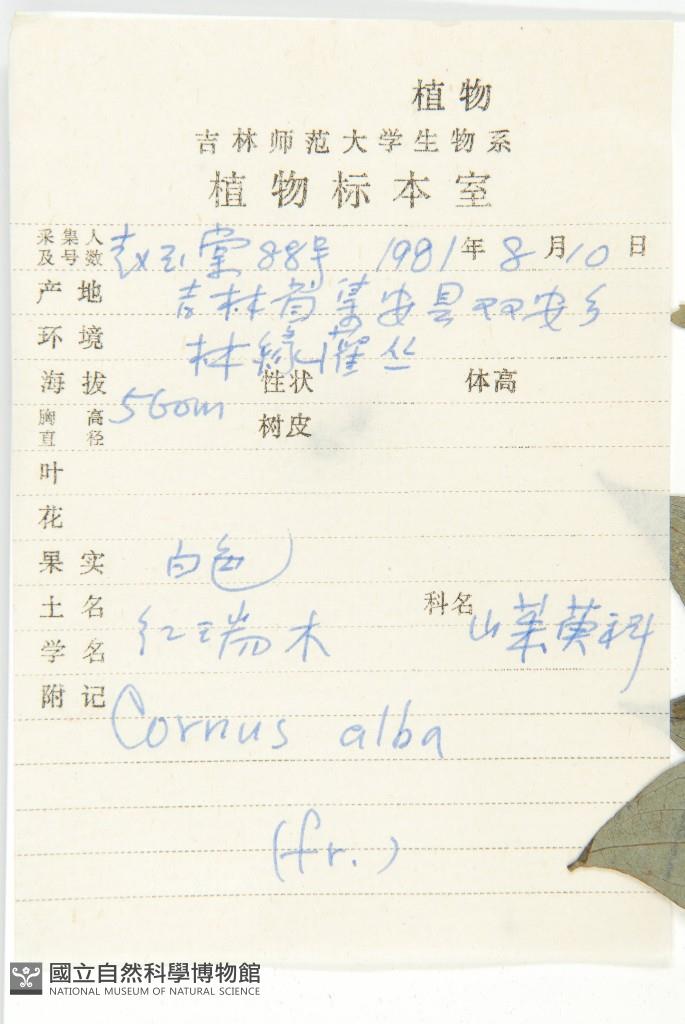 植物
吉林师范大学生物系
植物标本室
采集人及号数 赵玉棠 88号 1981年8月10日
产地 吉林省集安县双安乡
环境 林缘灌丛
海拔 560m 性状 体高
胸高直径 树皮
叶
花
果实 白色
土名 红瑞木 科名 山茱萸科
学名
附记 Cornus alba
(fr.)
國立自然科學博物館
NATIONAL MUSEUM OF NATURAL SCIENCE